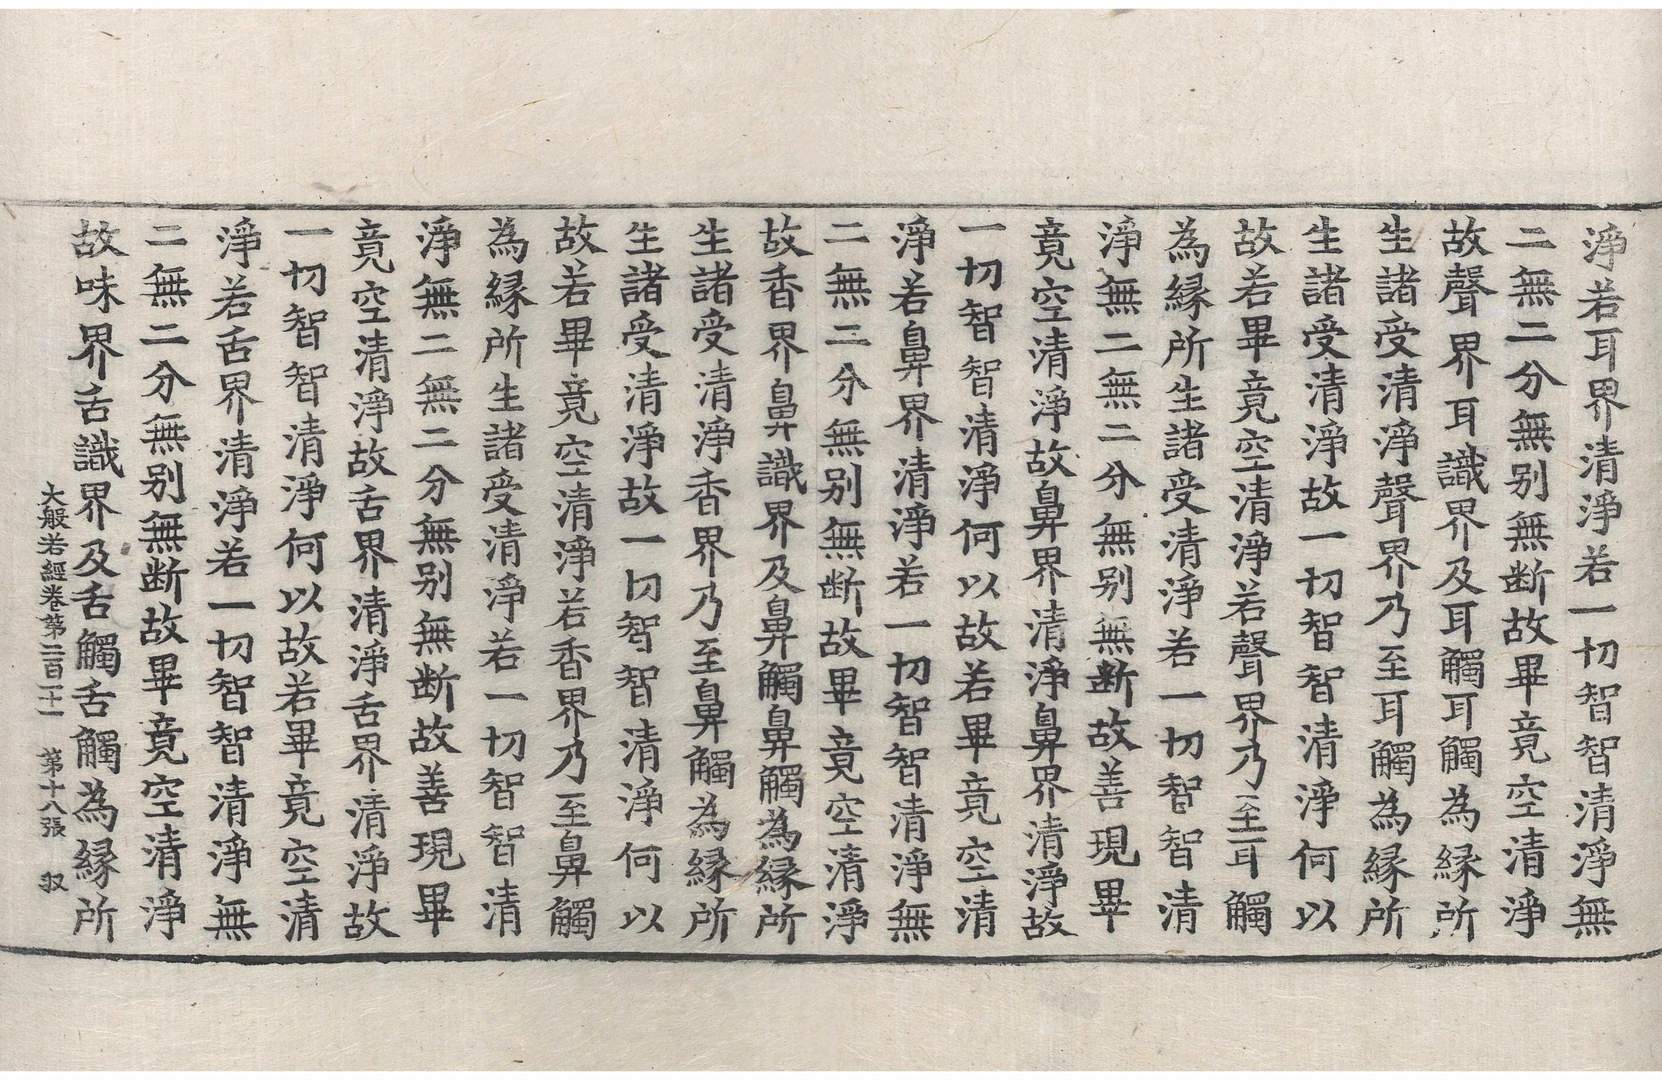 淨若耳界清淨若一切智智清淨無
二無二分無别無断故畢竟空清淨
故聲界耳識界及耳觸耳觸為縁所
生諸受清淨聲界乃至耳觸為縁所
生諸受清淨故一切智智清淨何以
故若畢竟空清淨若聲界乃至耳觸
為縁所生諸受清淨若一切智智清
淨無二無二分無别無断故善現畢
竟空清淨故鼻界清淨鼻界清淨故
一切智智清淨何以故若畢竟空清
淨若鼻界清淨若一切智智清淨無
二無三分無别無断故畢竟空清淨
故香界鼻識界及鼻觸鼻觸為縁所
生諸受清淨香界乃至鼻觸為縁所
生諸受清淨故一切智智清淨何以
故若畢竟空清淨若香界乃至鼻觸
為縁所生諸受清淨若一切智智清
淨無二無二分無别無断故善現畢
竟空清淨故舌界清淨舌界清淨故
一切智智清淨何以故若畢竟空清
淨若舌界清淨若一切智智清淨無
二無二分無别無断故畢竟空清淨
故味界舌識界及舌觸舌觸為縁所
大般若經卷第二百一十一 第十八張 収